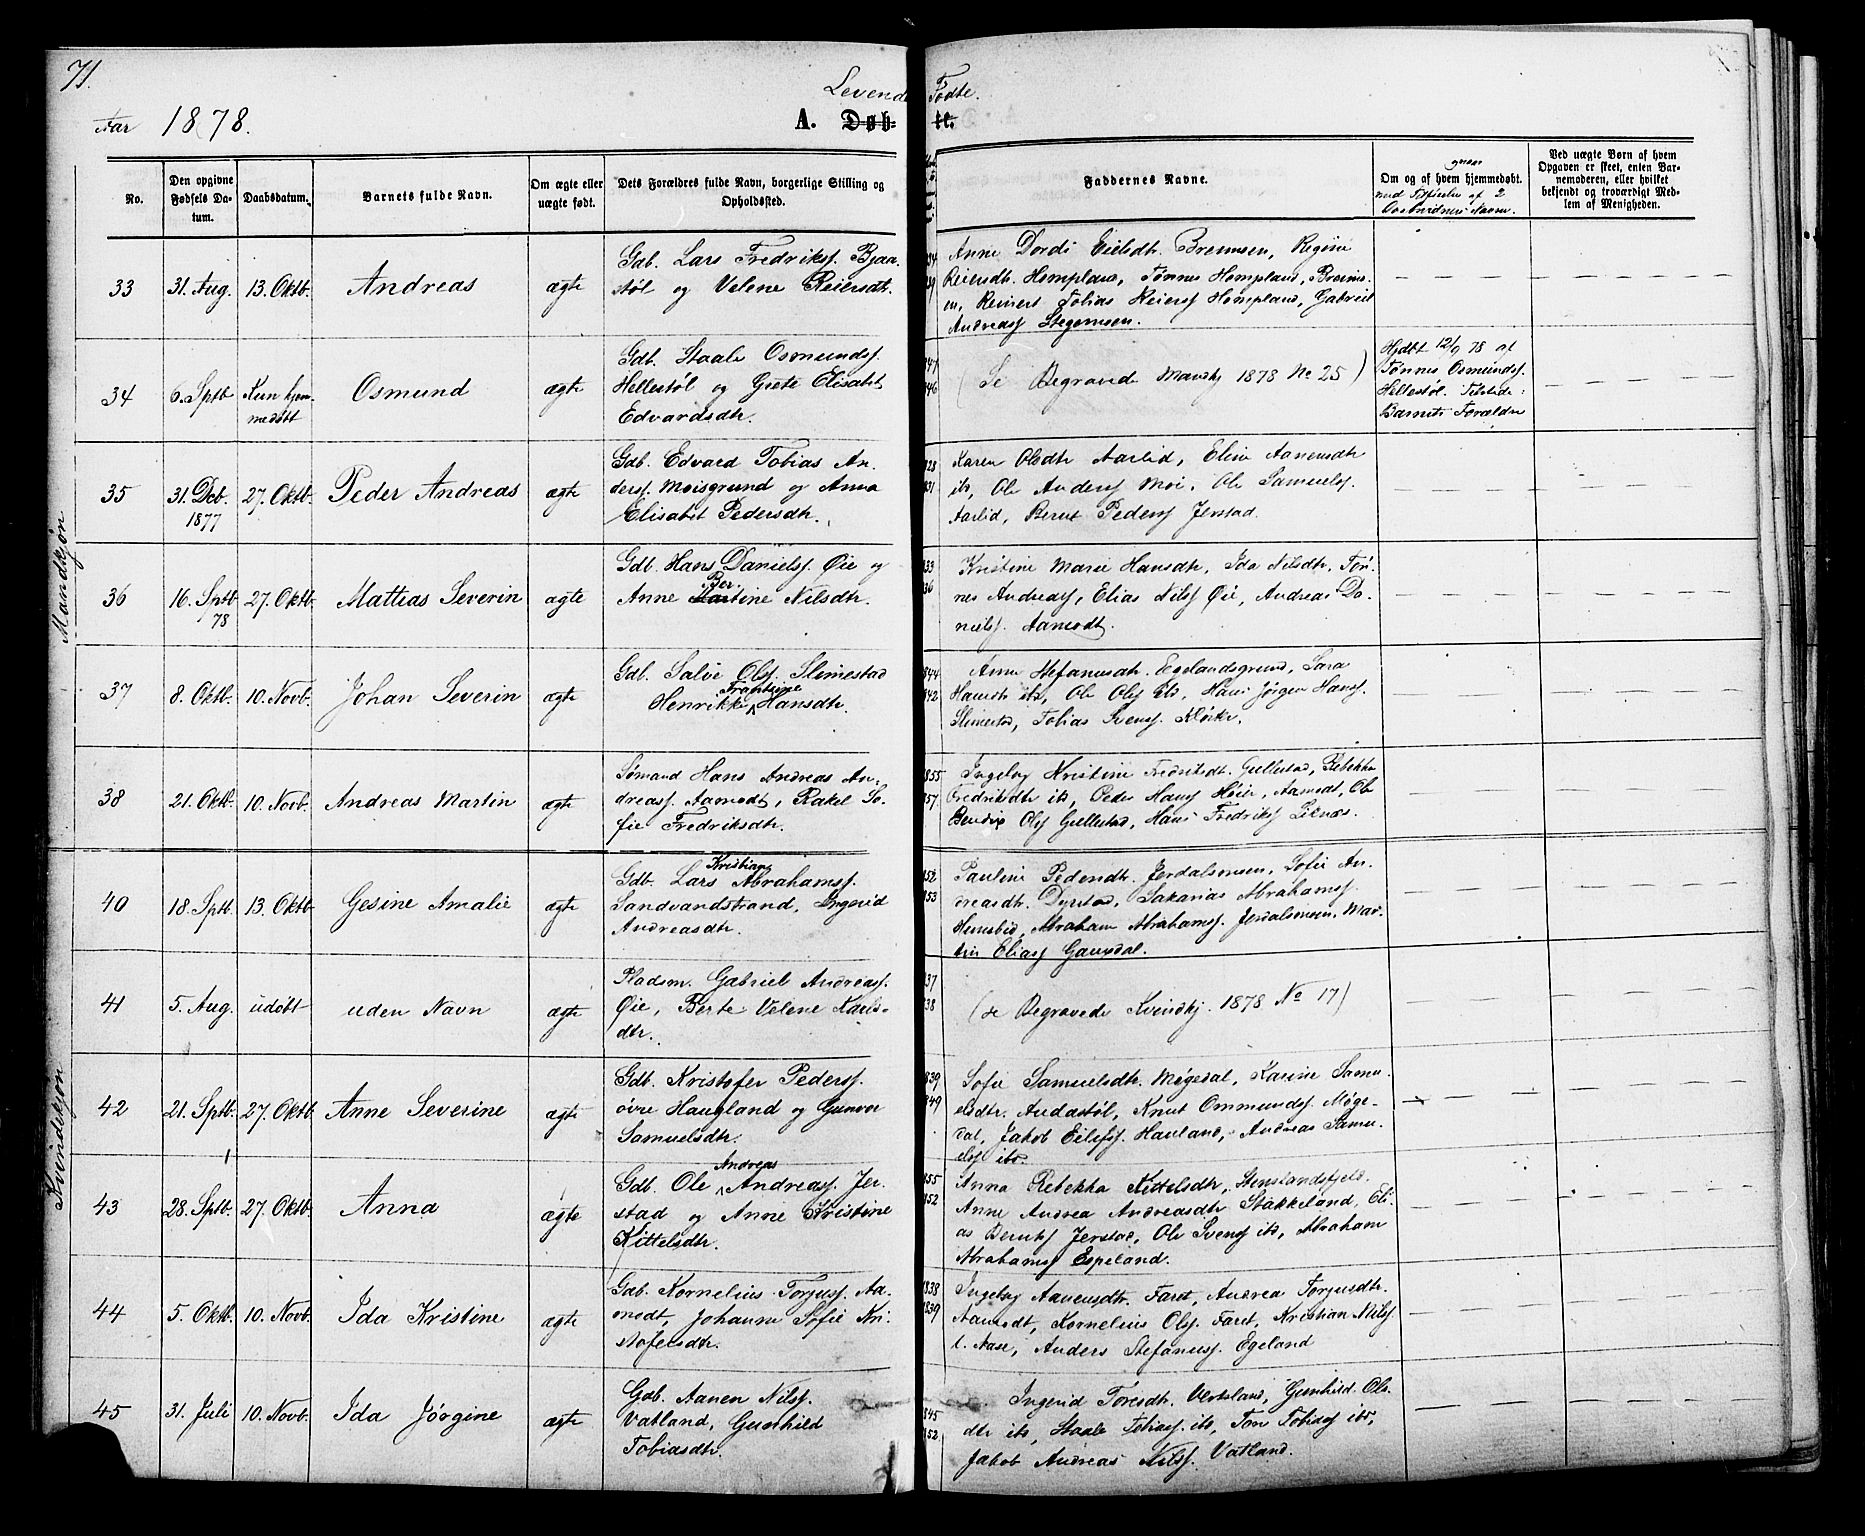 71.
Levende Fødte.
Aar 1878.
A. Døb- te.
No.
Den opgivne Fødsels Da-
tum.
Daabsdatum.
Barnets fulde Navn.
Om ægte eller
uægte født.
Dets Forældres fulde Navn, borgerlige Stilling og
Opholdssted.
Faddernes Navne.
Om og af hvem hjemmedøbt.
Ved uægte Børn af hvem
Opgaven er skeet, enten Bar-
nemoderen, eller hvilket
bekjendt og troværdigt Med-
lem af Menigheden.
Mandkjøn
33
31. Aug.
13. Oktb.
Andreas
ægte
Gdb. Lars Fredriksf. Bjaa-
støl og Velene Reiersdt.
Anne Dordi Eielsdtr. Bremsen, Regine
Reiersdt. Hompland, Tønnes Hompland,
Reinert Tobias Reiersf Hompland, Gabriel
Andreasf Stegemoen.
34
6. Sptb
Kun hjem-
medøbt
Osmund
ægte
Gdb. Staale Osmundsf.
Hellestøl og Grete Elisabet
Edvardsdtr.
(Se Begravede Mandkj 1878 No 25)
Hjdbt 12/9 78 af
Tønnes Osmundsf.
Hellestøl. Tilstede:
Barnets Forældre
35
31. Dcb.
1877
27. Oktb.
Peder Andreas
ægte
Gdb. Edvard Tobias An-
dersf. Moisgrund og Anna
Elisabet Pedersdtr.
Karen Olsdtr Aarlid, Eline Aanensdtr
ibd, Ole Andersf Moi, Ole Samuelsf.
Aarlid, Berut Pedersf Jerstad.
36
16. Sptb
78
27. Oktb.
Mattias Severin
ægte
Gdb. Hans Danielsf. Øie og
Ber.
Anne Martine Nilsdtr.
Kristine Marie Hansdtr, Ida Nilsdtr, Tøn-
nes Andreasf, Elias Nilsf Øie, Andreas Da-
nielsf. Aamodt.
37
8. Oktb.
10. Novb.
Johan Severin
ægte
Gdb. Salve Olsf. Slimestad
Trontine
Henrikke Hansdtr.
Anne Stefanusdtr. Egelandsgrund, Sara
Hansdtr ibd, Ole Olsf ibd, Hans Jørgen Hansf.
Slimestad, Tobias Svensf. Kløike.
38
21. Oktb.
10. Novb.
Andreas Martin
ægte
Sømand Hans Andreas An-
dreasf. Aamodt, Rakel So-
fie Fredriksdtr.
Ingeborg Kristine Fredriksdt. Gullestad, Rebekka
Fredriksdtr ibd, Peder Hansf Høiie, Aamodt, Ole
Bendix Olsf Gullestad, Hans Fredriksf Liknæs.
Kvindekjøn
40
18. Sptb.
13. Oktb
Gesine Amalie
ægte
Kristian
Gdb. Lars Abrahamsf.
Sandvandstrand, Ingerid
Andreasdtr.
Pauline Pedersdtr. Jerdalsmoen, Sofie An-
dreasdtr. Dyrstad, Sakarias Abrahamsf.
Hunsbid, Abraham Abrahamsf. Jerdalsmoen, Mar-
tin Eliasf Gausdal.
41
5. Aug.
udøbt
uden Navn
ægte
Pladsm. Gabriel Andreasf.
Øie, Berte Velene Karls-
dtr.
(se Begravede Kvindkj. 1878 No 17)
42
21. Sptb.
27. Oktb
Anne Severine
ægte
Gdb. Kristofer Pedersf.
øvre Haugland og Gunvor
Samuelsdtr.
Sofie Samuelsdtr. Møgedal, Karine Samu-
elsdtr. Audastøl, Knut Ommundsf. Møge-
dal, Jakob Eilefsf. Hauland, Andreas Samu-
elsf ibd.
43
28. Sptb.
27. Oktb.
Anna
ægte
Andreas
Gdb. Ole Andreasf. Jer-
stad og Anne Kristine
Kittelsdtr.
Anna Rebekka Kittelsdtr, Stenslandsfjeld.
Anne Andrea Andreasdtr Stakkeland, Eli-
as Berutsf Jerstad, Ole Svensf ibd, Abraham
Abrahamsf Espeland.
44
5. Oktb.
10. Novb.
Ida Kristine
ægte
Gdb. Kornelius Torjusf. Aa-
modt, Johanne Sofie Kri-
stofersdtr.
Ingeborg Aanensdtr. Faret, Andrea Torjusdtr.
Aamodt, Kornelius Olsf. Faret, Kristian Nilsf
l. Nase, Anders Stefanusf. Egeland
45
31. Juli
10. Novb.
Ida Jørgine
ægte
Gdb. Aanen Nilsf.
Vatland, Gunhild
Tobiasdtr.
Ingerid Toresdtr. Vatland, Gunhild Ols-
dtr ibd, Staale Tobiasf. ibd, Tore Tobiasf ibd,
Jakob Andreas Nilsf. Vatland.